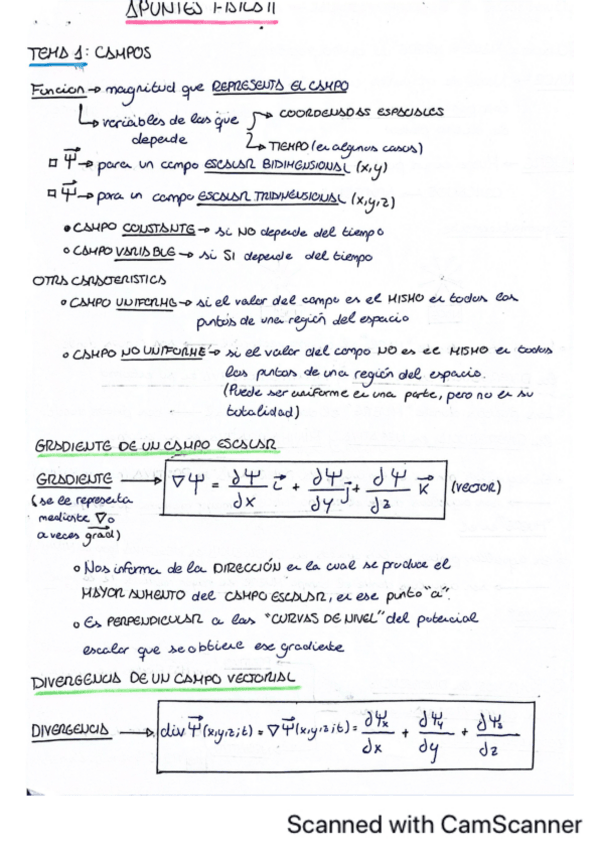 APUNTES FISICA II
TEMA 1: CAMPOS
Función → magnitud que REPRESENTA EL CAMPO
↳ variables de las que depende
→ COORDENADAS ESPACIALES
↳ TIEMPO (en algunos casos)
□ Ψ⃗ → para un campo ESCALAR BIDIMENSIONAL (x,y)
□ Ψ⃗ → para un campo ESCALAR TRIDIMENSIONAL (x,y,z)
• CAMPO CONSTANTE → si NO depende del tiempo
• CAMPO VARIABLE → si SI depende del tiempo
OTRA CARACTERISTICA
• CAMPO UNIFORME → si el valor del campo es el MISMO en todos los
puntos de una región del espacio
• CAMPO NO UNIFORME → si el valor del campo NO es el MISMO en todos
los puntos de una región del espacio.
(Puede ser uniforme en una parte, pero no en su
totalidad)
GRADIENTE DE UN CAMPO ESCALAR
GRADIENTE → ∇Ψ = ∂Ψ/∂x i⃗ + ∂Ψ/∂y j⃗ + ∂Ψ/∂z k⃗ (VECTOR)
(se le representa
mediante ∇ o
a veces grad)
• Nos informa de la DIRECCIÓN en la cual se produce el
MAYOR AUMENTO del CAMPO ESCALAR, en ese punto "a".
• Es PERPENDICULAR a las "CURVAS DE NIVEL" del potencial
escalar que se obtiene ese gradiente
DIVERGENCIA DE UN CAMPO VECTORIAL
DIVERGENCIA → div Ψ⃗(x,y,z;t) = ∇Ψ⃗(x,y,z;t) = ∂Ψx/∂x + ∂Ψy/∂y + ∂Ψz/∂z
Scanned with CamScanner